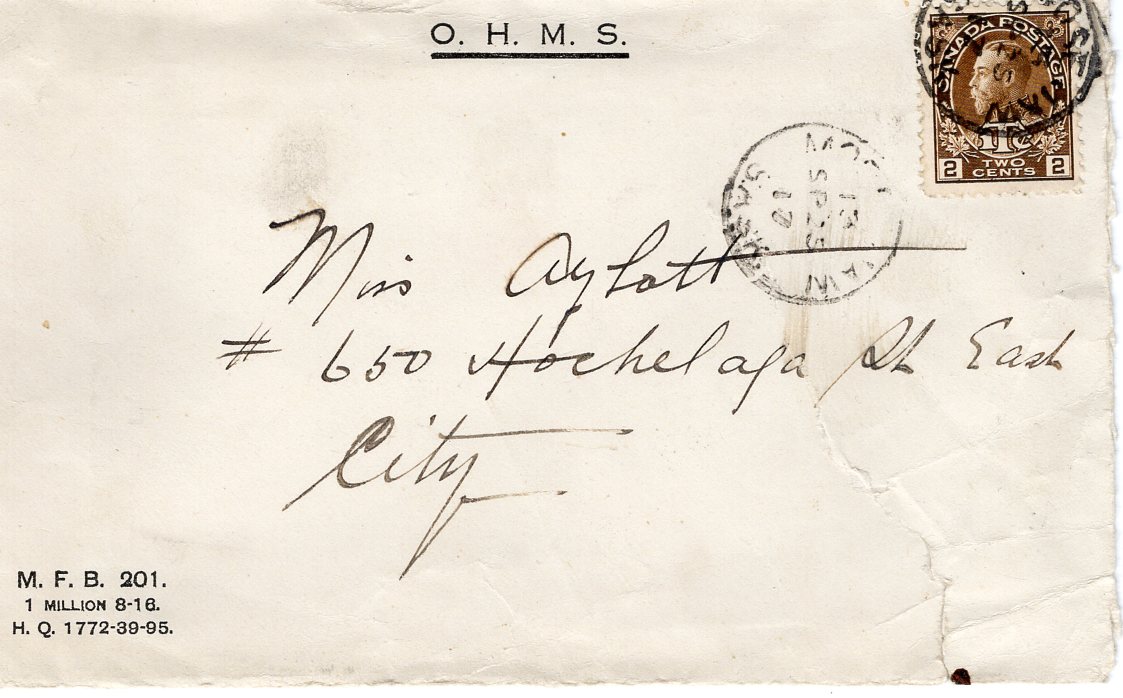 O. H. M. S.
CANADA POSTAGE
2 TWO CENTS 2
MOOSE JAW
13
SP 25
17
SASK
Miss Aylott
# 650 Hochelaga St East
City
M. F. B. 201.
1 MILLION 8-16.
H. Q. 1772-39-95.